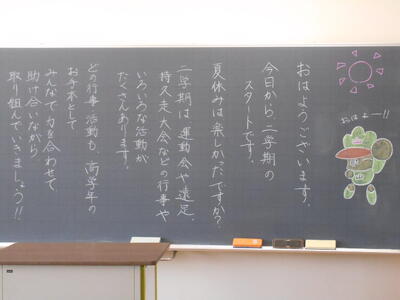 おはようございます。
今日から二学期の
スタートです。
夏休みは楽しかったですか？
二学期は運動会や遠足、
持久走大会などの行事や
いろいろな活動が
たくさんあります。
どの行事・活動も高学年の
お手本として
みんなで力を合わせて
助け合いながら
取り組んでいきましょう!!
おはよー!!